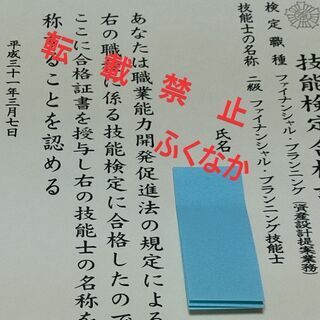 技能検定合格
検定職種 ファイナンシャル・プランニング（資産設計提案業務）
技能士の名称 二級ファイナンシャル・プランニング技能士
氏名
あなたは職業能力開発促進法の規定による
右の職種に係る技能検定に合格したので
ここに合格証書を授与し右の技能士の名称を
称することを認める
平成三十一年三月七日
転載禁止
ふくなか